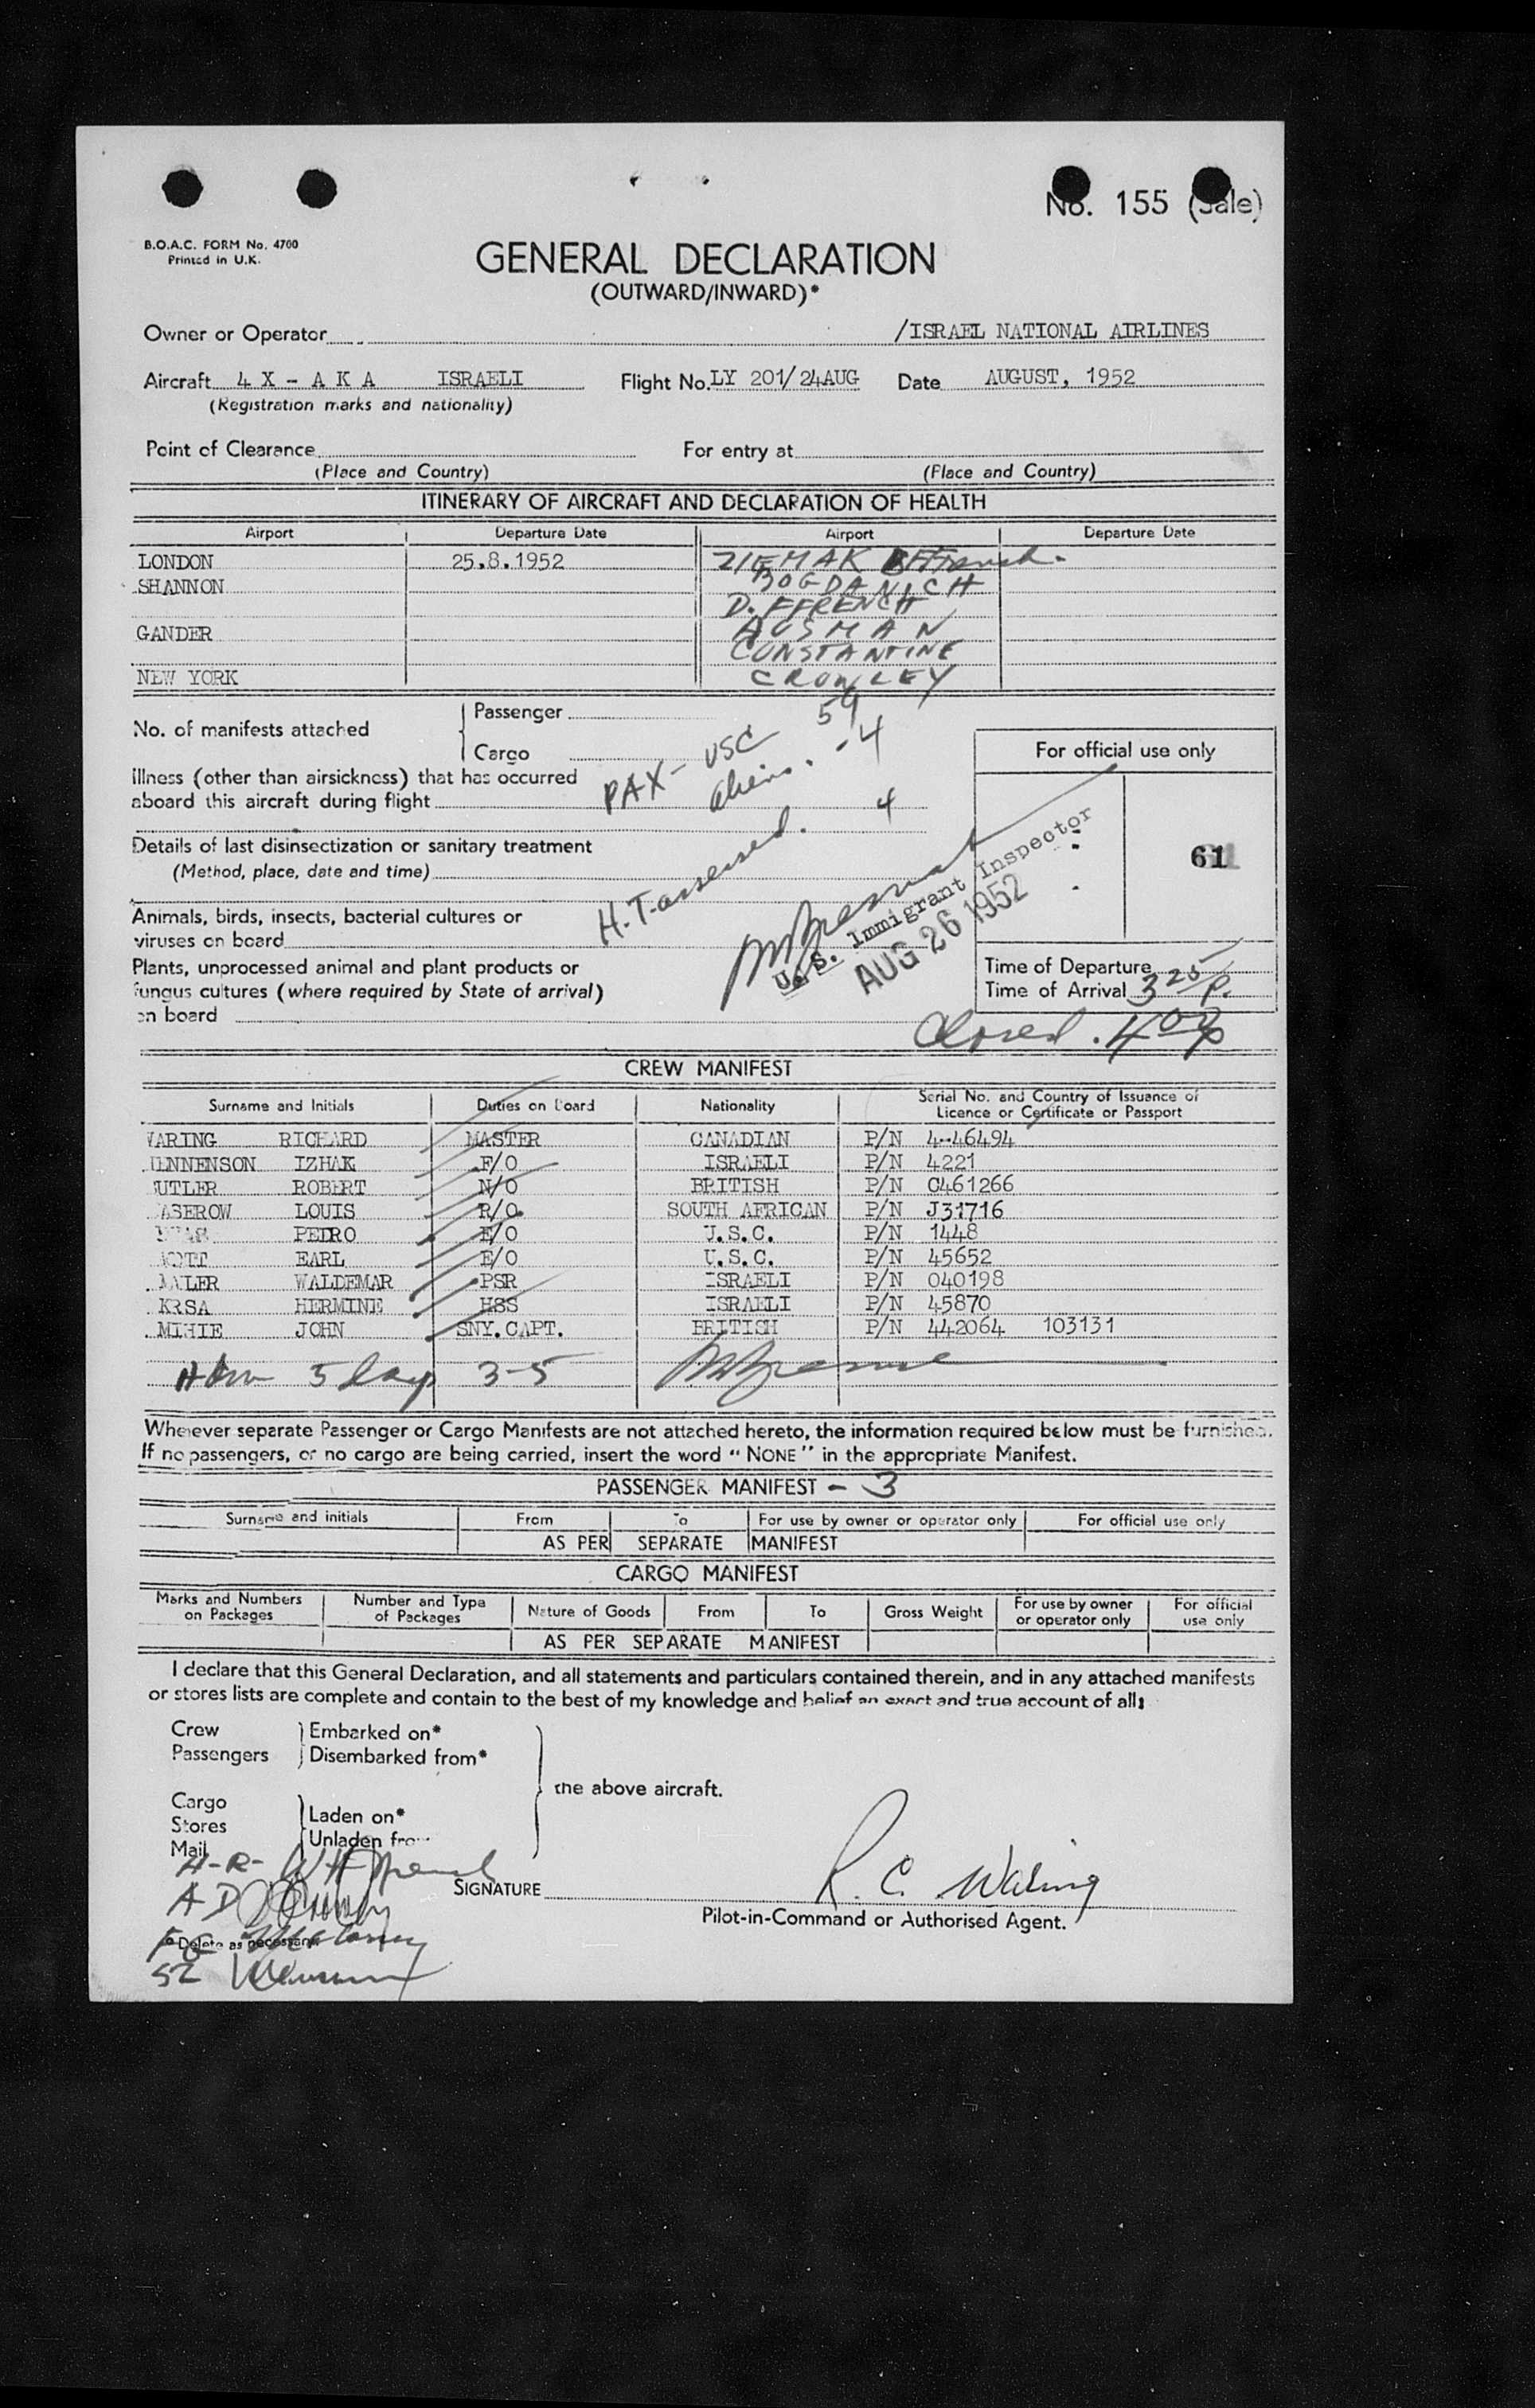 No. 155 (Sale)
B.O.A.C. FORM No. 4700
Printed in U.K.
GENERAL DECLARATION
(OUTWARD/INWARD)*
Owner or Operator /ISRAEL NATIONAL AIRLINES
Aircraft 4 X - A K A ISRAELI Flight No. LY 201/24AUG Date AUGUST, 1952
(Registration marks and nationality)
Point of Clearance For entry at
(Place and Country) (Place and Country)
ITINERARY OF AIRCRAFT AND DECLARATION OF HEALTH
Airport Departure Date Airport Departure Date
LONDON 25.8.1952 ZIEMAK
SHANNON BOGDANICH
D. FFRENCH
GANDER AUSMAN
CONSTANTINE
NEW YORK CROWLEY
No. of manifests attached Passenger
Cargo
PAX - USC 59
Aliens. - 4
Illness (other than airsickness) that has occurred
aboard this aircraft during flight
For official use only
H.T. assessed. 4
61
Details of last disinsectization or sanitary treatment
(Method, place, date and time)
U.S. Immigrant Inspector
AUG 26 1952
Animals, birds, insects, bacterial cultures or
viruses on board
Plants, unprocessed animal and plant products or
fungus cultures (where required by State of arrival)
on board
Time of Departure
Time of Arrival 3 25/p.
Closed. 4 00 p
CREW MANIFEST
Surname and Initials Duties on Board Nationality Serial No. and Country of Issuance of
Licence or Certificate or Passport
WARING RICHARD MASTER CANADIAN P/N 4-46494
ENNENSON IZHAK F/O ISRAELI P/N 4221
UTLER ROBERT N/O BRITISH P/N C461266
ASEROW LOUIS R/O SOUTH AFRICAN P/N J31716
PEDRO E/O U.S.C. P/N 1448
EARL E/O U.S.C. P/N 45652
LER WALDEMAR PSR ISRAELI P/N 040198
KRSA HERMINE HSS ISRAELI P/N 45870
MIHIE JOHN SNY.CAPT. BRITISH P/N 442064 103131
5 days 3-5
Wherever separate Passenger or Cargo Manifests are not attached hereto, the information required below must be furnished.
If no passengers, or no cargo are being carried, insert the word "NONE" in the appropriate Manifest.
PASSENGER MANIFEST - 3
Surname and initials From To For use by owner or operator only For official use only
AS PER SEPARATE MANIFEST
CARGO MANIFEST
Marks and Numbers on Packages Number and Type of Packages Nature of Goods From To Gross Weight For use by owner or operator only For official use only
AS PER SEPARATE MANIFEST
I declare that this General Declaration, and all statements and particulars contained therein, and in any attached manifests
or stores lists are complete and contain to the best of my knowledge and belief an exact and true account of all:
Crew Embarked on*
Passengers Disembarked from*
the above aircraft.
Cargo Laden on*
Stores Unladen from
Mail
H-R-
SIGNATURE R. C. Waring
Pilot-in-Command or Authorised Agent.
* Delete as necessary
52